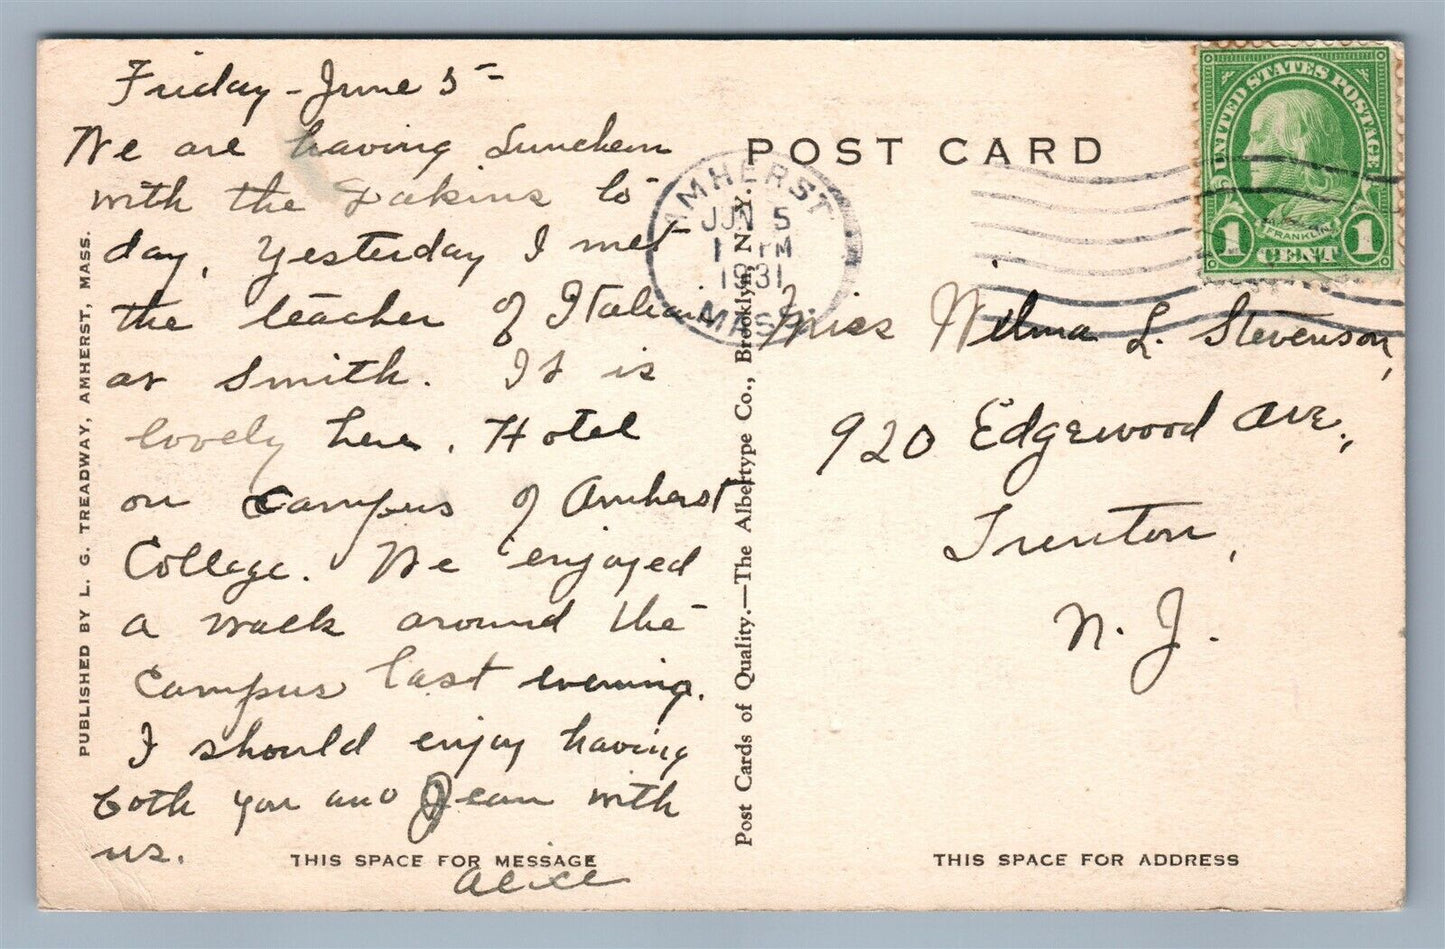 Friday - June 5 -
We are having luncheon
with the Dakins to-
day. Yesterday I met
the teacher of Italian
at Smith. It is
lovely here. Hotel
on campus of Amherst
College. We enjoyed
a walk around the
campus last evening.
I should enjoy having
both you and Jean with
us.
Alice
THIS SPACE FOR MESSAGE
PUBLISHED BY L. G. TREADWAY, AMHERST, MASS.
Post Cards of Quality.—The Albertype Co., Brooklyn, N. Y.
POST CARD
AMHERST
JUN 5
PM
1931
MASS.
UNITED STATES POSTAGE
FRANKLIN
1 CENT 1
Miss Wilma L. Stevenson,
920 Edgewood Ave.,
Trenton,
N. J.
THIS SPACE FOR ADDRESS